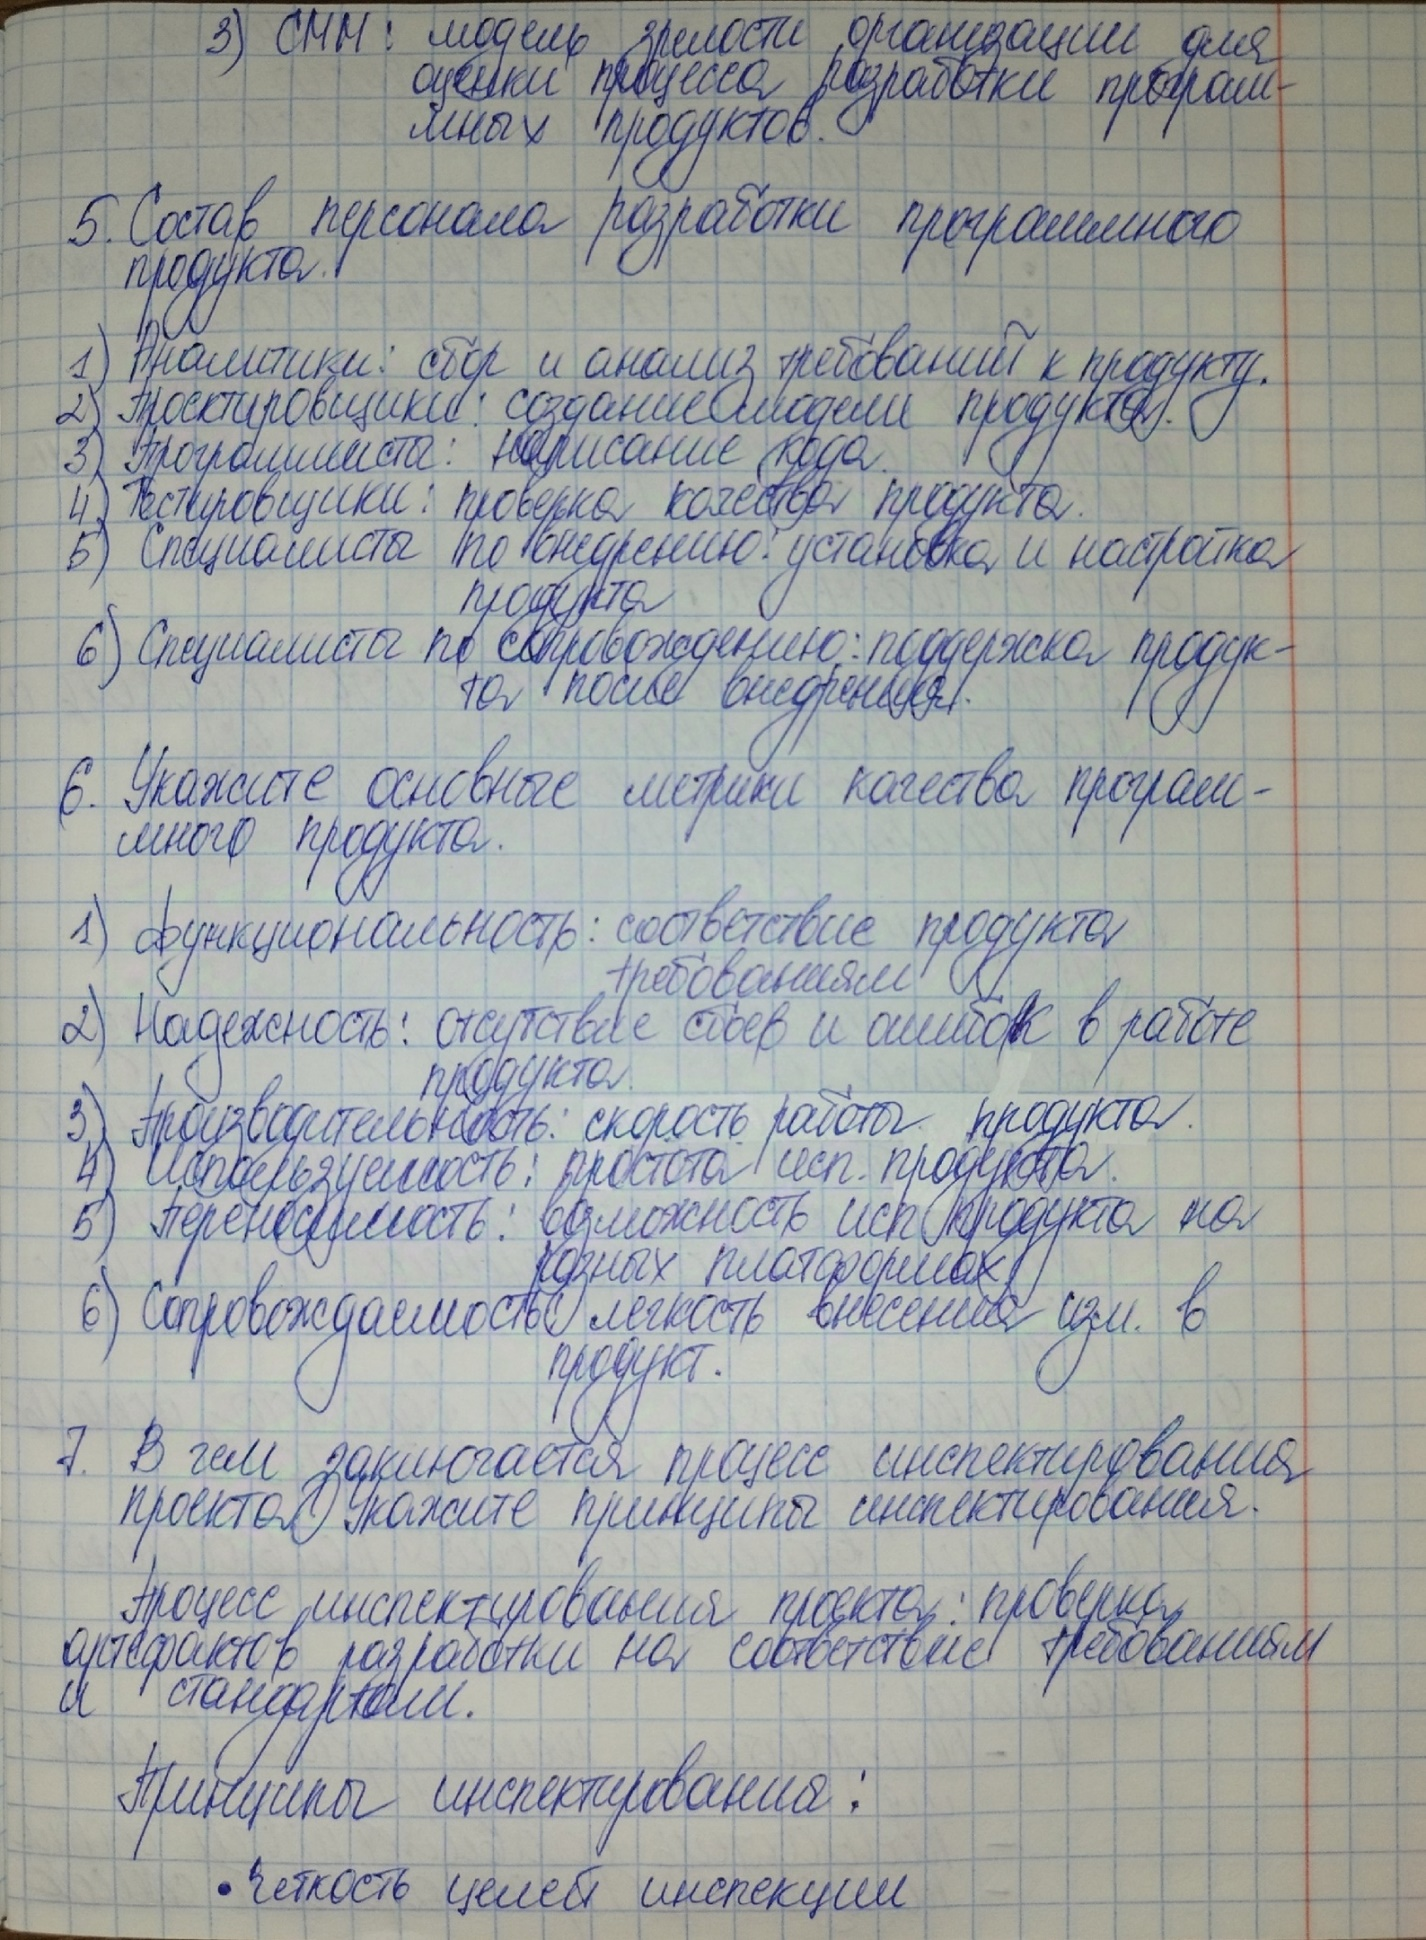 3) СММ: модель зрелости организации для
оценки процесса разработки програм-
мных продуктов.
5. Состав персонала разработки программного
продукта.
1) Аналитики: сбор и анализ требований к продукту.
2) Проектировщики: создание модели продукта.
3) Программисты: написание кода.
4) Тестировщики: проверка качества продукта.
5) Специалисты по внедрению: установка и настройка
продукта
6) Специалисты по сопровождению: поддержка продук-
та после внедрения.
6. Укажите основные метрики качества програм-
много продукта.
1) Функциональность: соответствие продукта
требованиям
2) Надежность: отсутствие сбоев и ошибок в работе
продукта.
3) Производительность: скорость работы продукта.
4) Используемость: простота исп. продукта.
5) Переносимость: возможность исп. продукта на
разных платформах
6) Сопровождаемость: легкость внесения изм. в
продукт.
7. В чем заключается процесс инспектирования
проекта? Укажите принципы инспектирования.
Процесс инспектирования проекта: проверка
артефактов разработки на соответствие требованиям
и стандартам.
Принципы инспектирования:
• Четкость целей инспекции